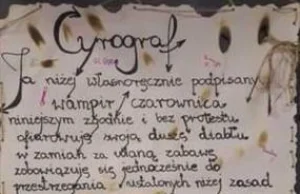 Cyrograf
Ja niżej własnoręcznie podpisany
wampir/czarownica
niniejszym zgodnie i bez protestu
ofiarowuję swoją duszę diabłu
w zamian za udaną zabawę
zobowiązuję się jednocześnie do
przestrzegania ustalonych niżej zasad